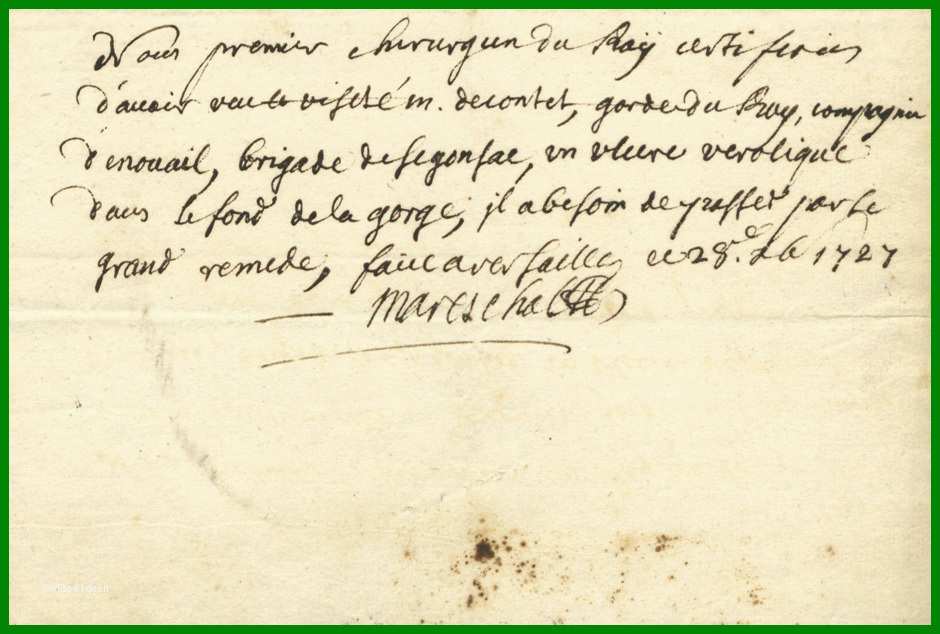 Nous premier chirurgien du Roÿ certifions
d'auoir veu et visité m. decontet, garde du Roy, compagnie
denouail, brigade de segonsac, un ulcere verolique
dans le fond de la gorge, jl a besoin de passer par le
grand remede, faict a versailles ce 28.e 1727
Mareschal